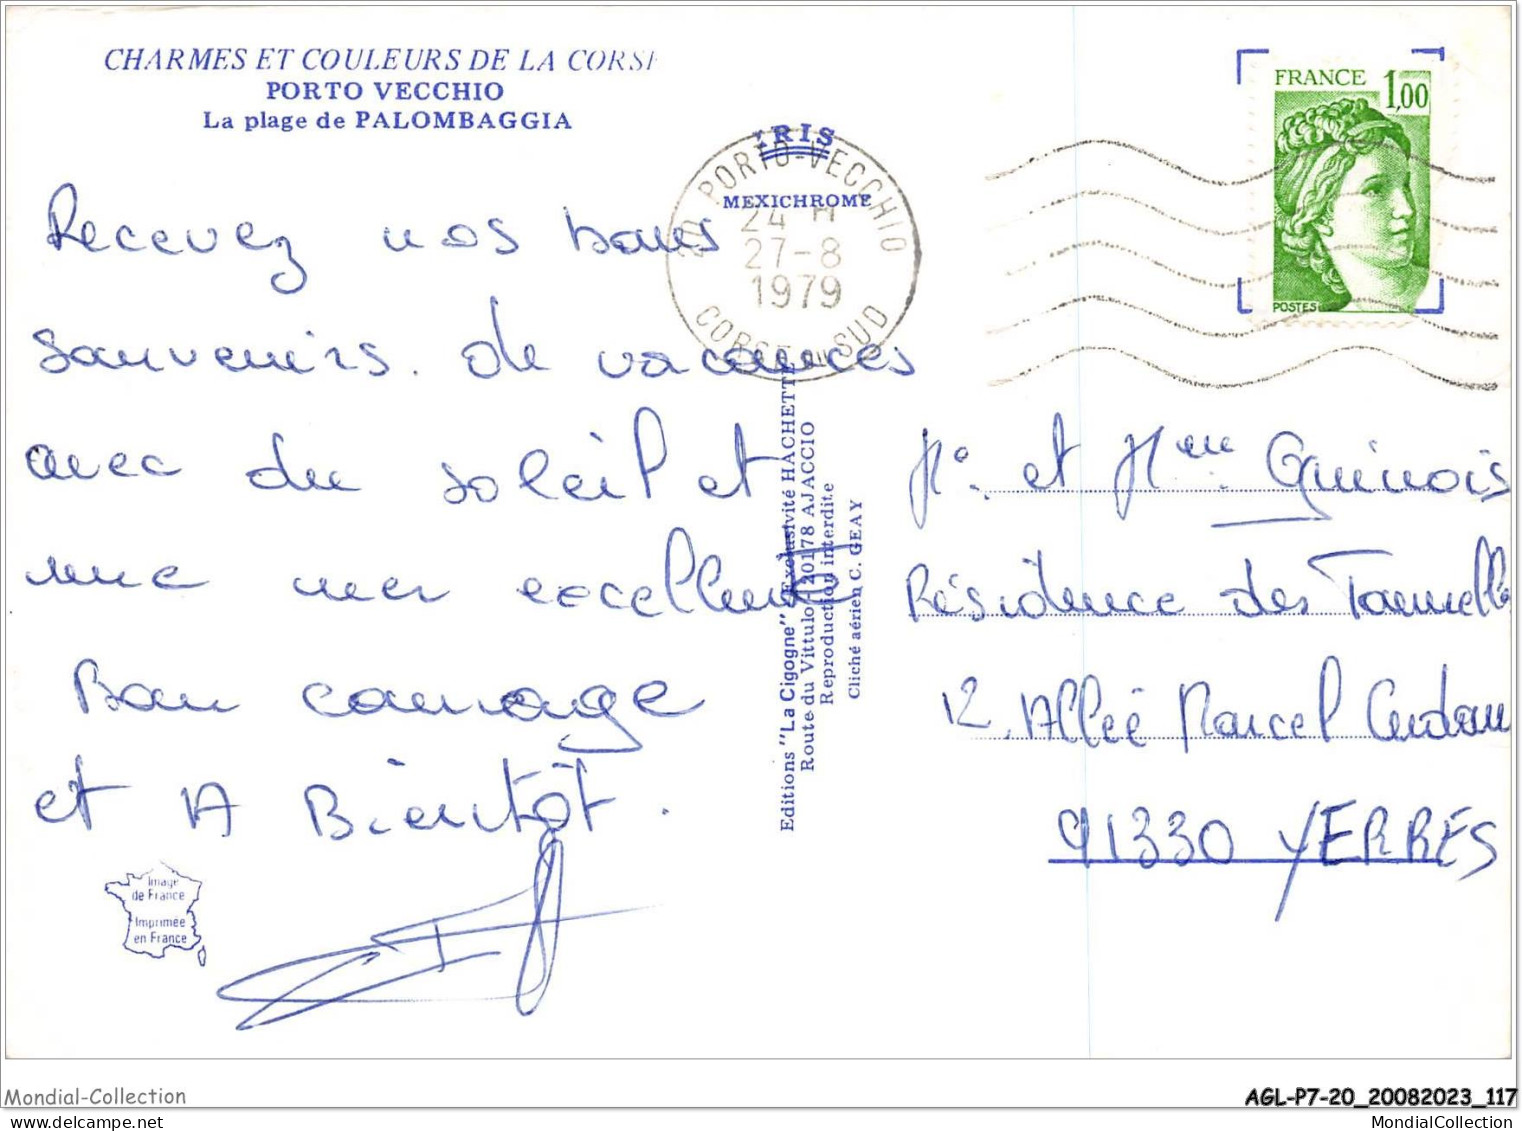 CHARMES ET COULEURS DE LA CORSE
PORTO VECCHIO
La plage de PALOMBAGGIA
IRIS
MEXICHROME
20 PORTO-VECCHIO
24 H
27-8
1979
CORSE DU SUD
FRANCE 1,00
POSTES
Recevez nos bons
souvenirs. de vacances
avec du soleil et
une mer excellente
Bon courage
et A Bientôt.
Editions "La Cigogne" Exclusivité HACHETTE
Route du Vittulo 20178 AJACCIO
Reproduction interdite
Cliché aérien C. GEAY
Mr. et Mme. Guinois
Résidence des
12, Allée Marcel Cerdan
91330 YERRES
Image
de France
Imprimée
en France
Mondial-Collection
AGL-P7-20_20082023_117
www.delcampe.net
MondialCollection